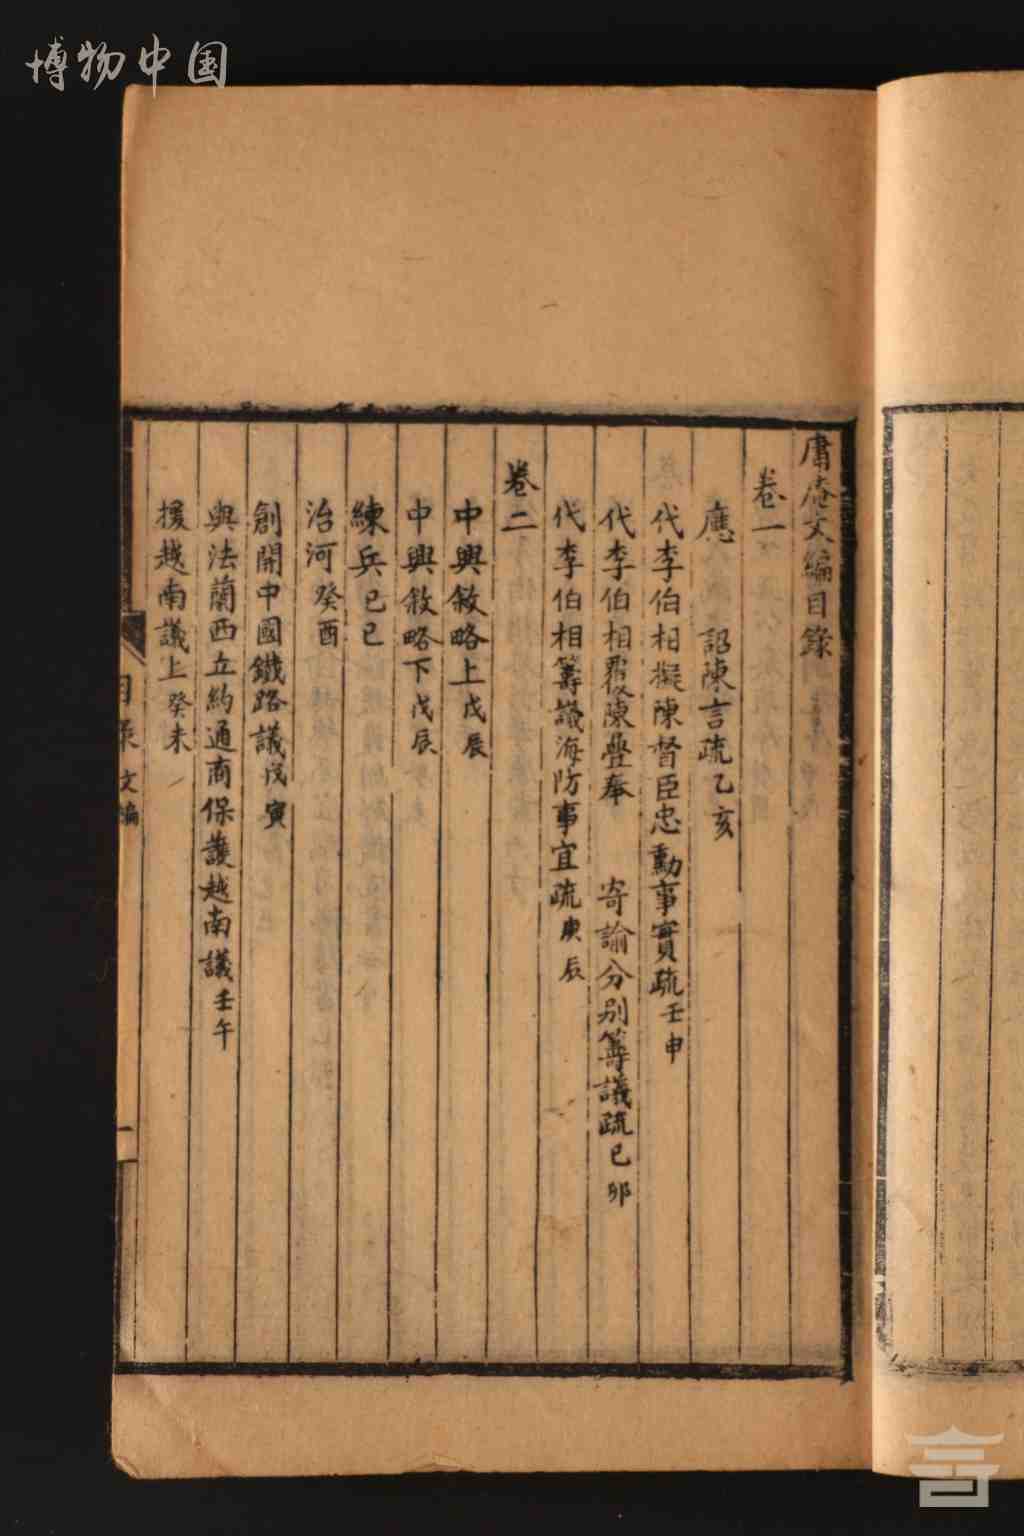 博物中国
庸庵文編目錄
卷一
應 詔陳言疏乙亥
代李伯相擬陳督臣忠勳事實疏壬申
代李伯相覆陳疊奉 寄諭分別籌議疏已卯
代李伯相籌議海防事宜疏庚辰
卷二
中興敘略上戊辰
中興敘略下戊辰
練兵已巳
治河癸酉
創開中國鐵路議戊寅
與法蘭西立約通商保護越南議壬午
援越南議上癸未
目录 文編
一